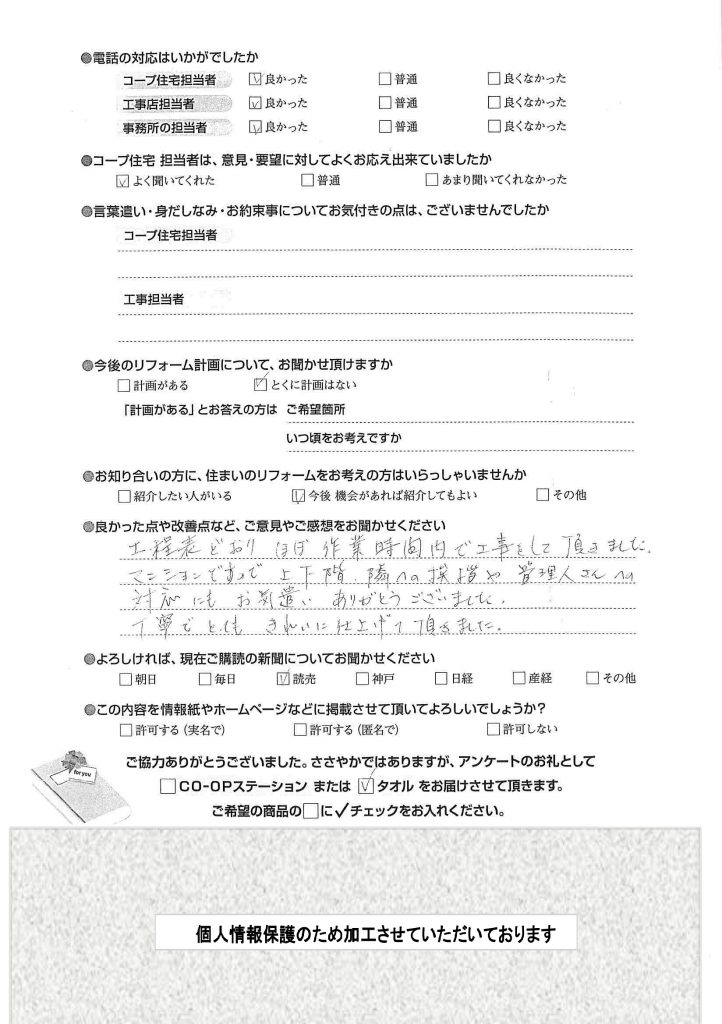 ●電話の対応はいかがでしたか
コープ住宅担当者 ☑良かった □普通 □良くなかった
工事店担当者 ☑良かった □普通 □良くなかった
事務所の担当者 ☑良かった □普通 □良くなかった
●コープ住宅 担当者は、意見・要望に対してよくお応え出来ていましたか
☑よく聞いてくれた □普通 □あまり聞いてくれなかった
●言葉遣い・身だしなみ・お約束事についてお気付きの点は、ございませんでしたか
コープ住宅担当者
工事担当者
●今後のリフォーム計画について、お聞かせ頂けますか
□計画がある ☑とくに計画はない
「計画がある」とお答えの方は ご希望箇所
いつ頃をお考えですか
●お知り合いの方に、住まいのリフォームをお考えの方はいらっしゃいませんか
□紹介したい人がいる ☑今後 機会があれば紹介してもよい □その他
●良かった点や改善点など、ご意見やご感想をお聞かせください
工程表どおり ほぼ 作業時間内で工事をして頂きました。
マンションですので 上下階、隣への挨拶や 管理人さんへの
対応にも お気遣い ありがとうございました。
丁寧で とても きれいに仕上げて頂きました。
●よろしければ、現在ご購読の新聞についてお聞かせください
□朝日 □毎日 ☑読売 □神戸 □日経 □産経 □その他
●この内容を情報紙やホームページなどに掲載させて頂いてよろしいでしょうか?
□許可する（実名で） □許可する（匿名で） □許可しない
for you
ご協力ありがとうございました。ささやかではありますが、アンケートのお礼として
□CO-OPステーション または ☑タオル をお届けさせて頂きます。
ご希望の商品の□に✓チェックをお入れください。
個人情報保護のため加工させていただいております